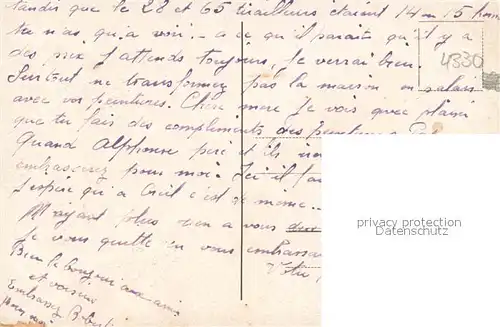 tandis que le 28 et 65 tirailleurs étaient 14 ou 15
tu n'as qu'a voir - a ce qu'il parait qu'il y a
des prix j'attends toujours, je verrai bien.
Surtout ne transformez pas la maison en salon
avec vos peintures. Chère mere Je vois avec plaisi
que tu fais des compliments des peintures
Quand Alphonse père et ils
embrasserez pour moi. Ici il fa
J'espère qu'a Creil c'est de même...
N'ayant plus rien a vous
Je vous quitte en vous embrassa
Votre
Bien le bonjour aux amis
et voisins
Embrassez
pour moi
4830
privacy protection
mask